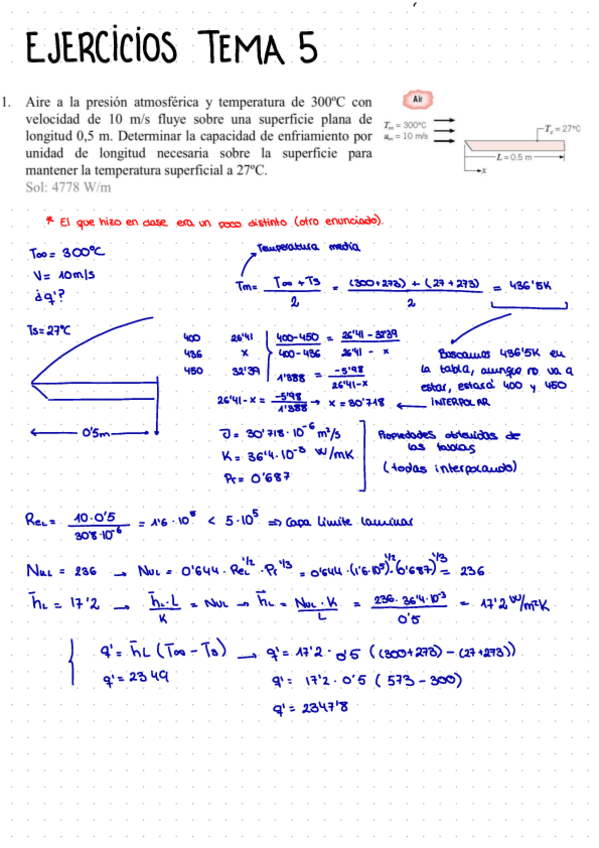 EJERCICIOS TEMA 5
1. Aire a la presión atmosférica y temperatura de 300ºC con
velocidad de 10 m/s fluye sobre una superficie plana de
longitud 0,5 m. Determinar la capacidad de enfriamiento por
unidad de longitud necesaria sobre la superficie para
mantener la temperatura superficial a 27ºC.
Sol: 4778 W/m
Air
T∞ = 300°C
u∞ = 10 m/s
Ts = 27°C
L = 0.5 m
x
* El que hizo en clase era un poco distinto (otro enunciado).
T∞ = 300ºC
V = 10m/s
¿q'?
Temperatura media
Tm = (T∞ + Ts)/2 = ((300+273) + (27+273))/2 = 436'5K
Ts = 27ºC
0'5m
400 26'41
436 x
450 32'39
(400-450)/(400-436) = (26'41 - 32'39)/(26'41 - x)
1'388 = -5'98/(26'41-x)
26'41-x = -5'98/1'388 → x = 30'718 ← INTERPOLAR
Buscamos 436'5K en
la tabla, aunque no va a
estar, estará 400 y 450
ν = 30'718·10⁻⁶ m²/s
K = 36'4·10⁻³ W/mK
Pr = 0'687
Propiedades obtenidas de
las tablas
(todas interpolando)
ReL = (10·0'5)/(30'8·10⁻⁶) = 1'6·10⁵ < 5·10⁵ ⇒ Capa límite laminar
NuL = 236 → NuL = 0'644·ReL^1/2·Pr^1/3 = 0'644·(1'6·10⁵)^1/2·(0'687)^1/3 = 236
h̄L = 17'2 → (h̄L·L)/K = NuL → h̄L = (NuL·K)/L = (236·36'4·10⁻³)/0'5 = 17'2 W/m²K
q' = h̄L (T∞ - Ts) → q' = 17'2·0'5 ((300+273) - (27+273))
q' = 2349
q' = 17'2·0'5 (573 - 300)
q' = 2347'8